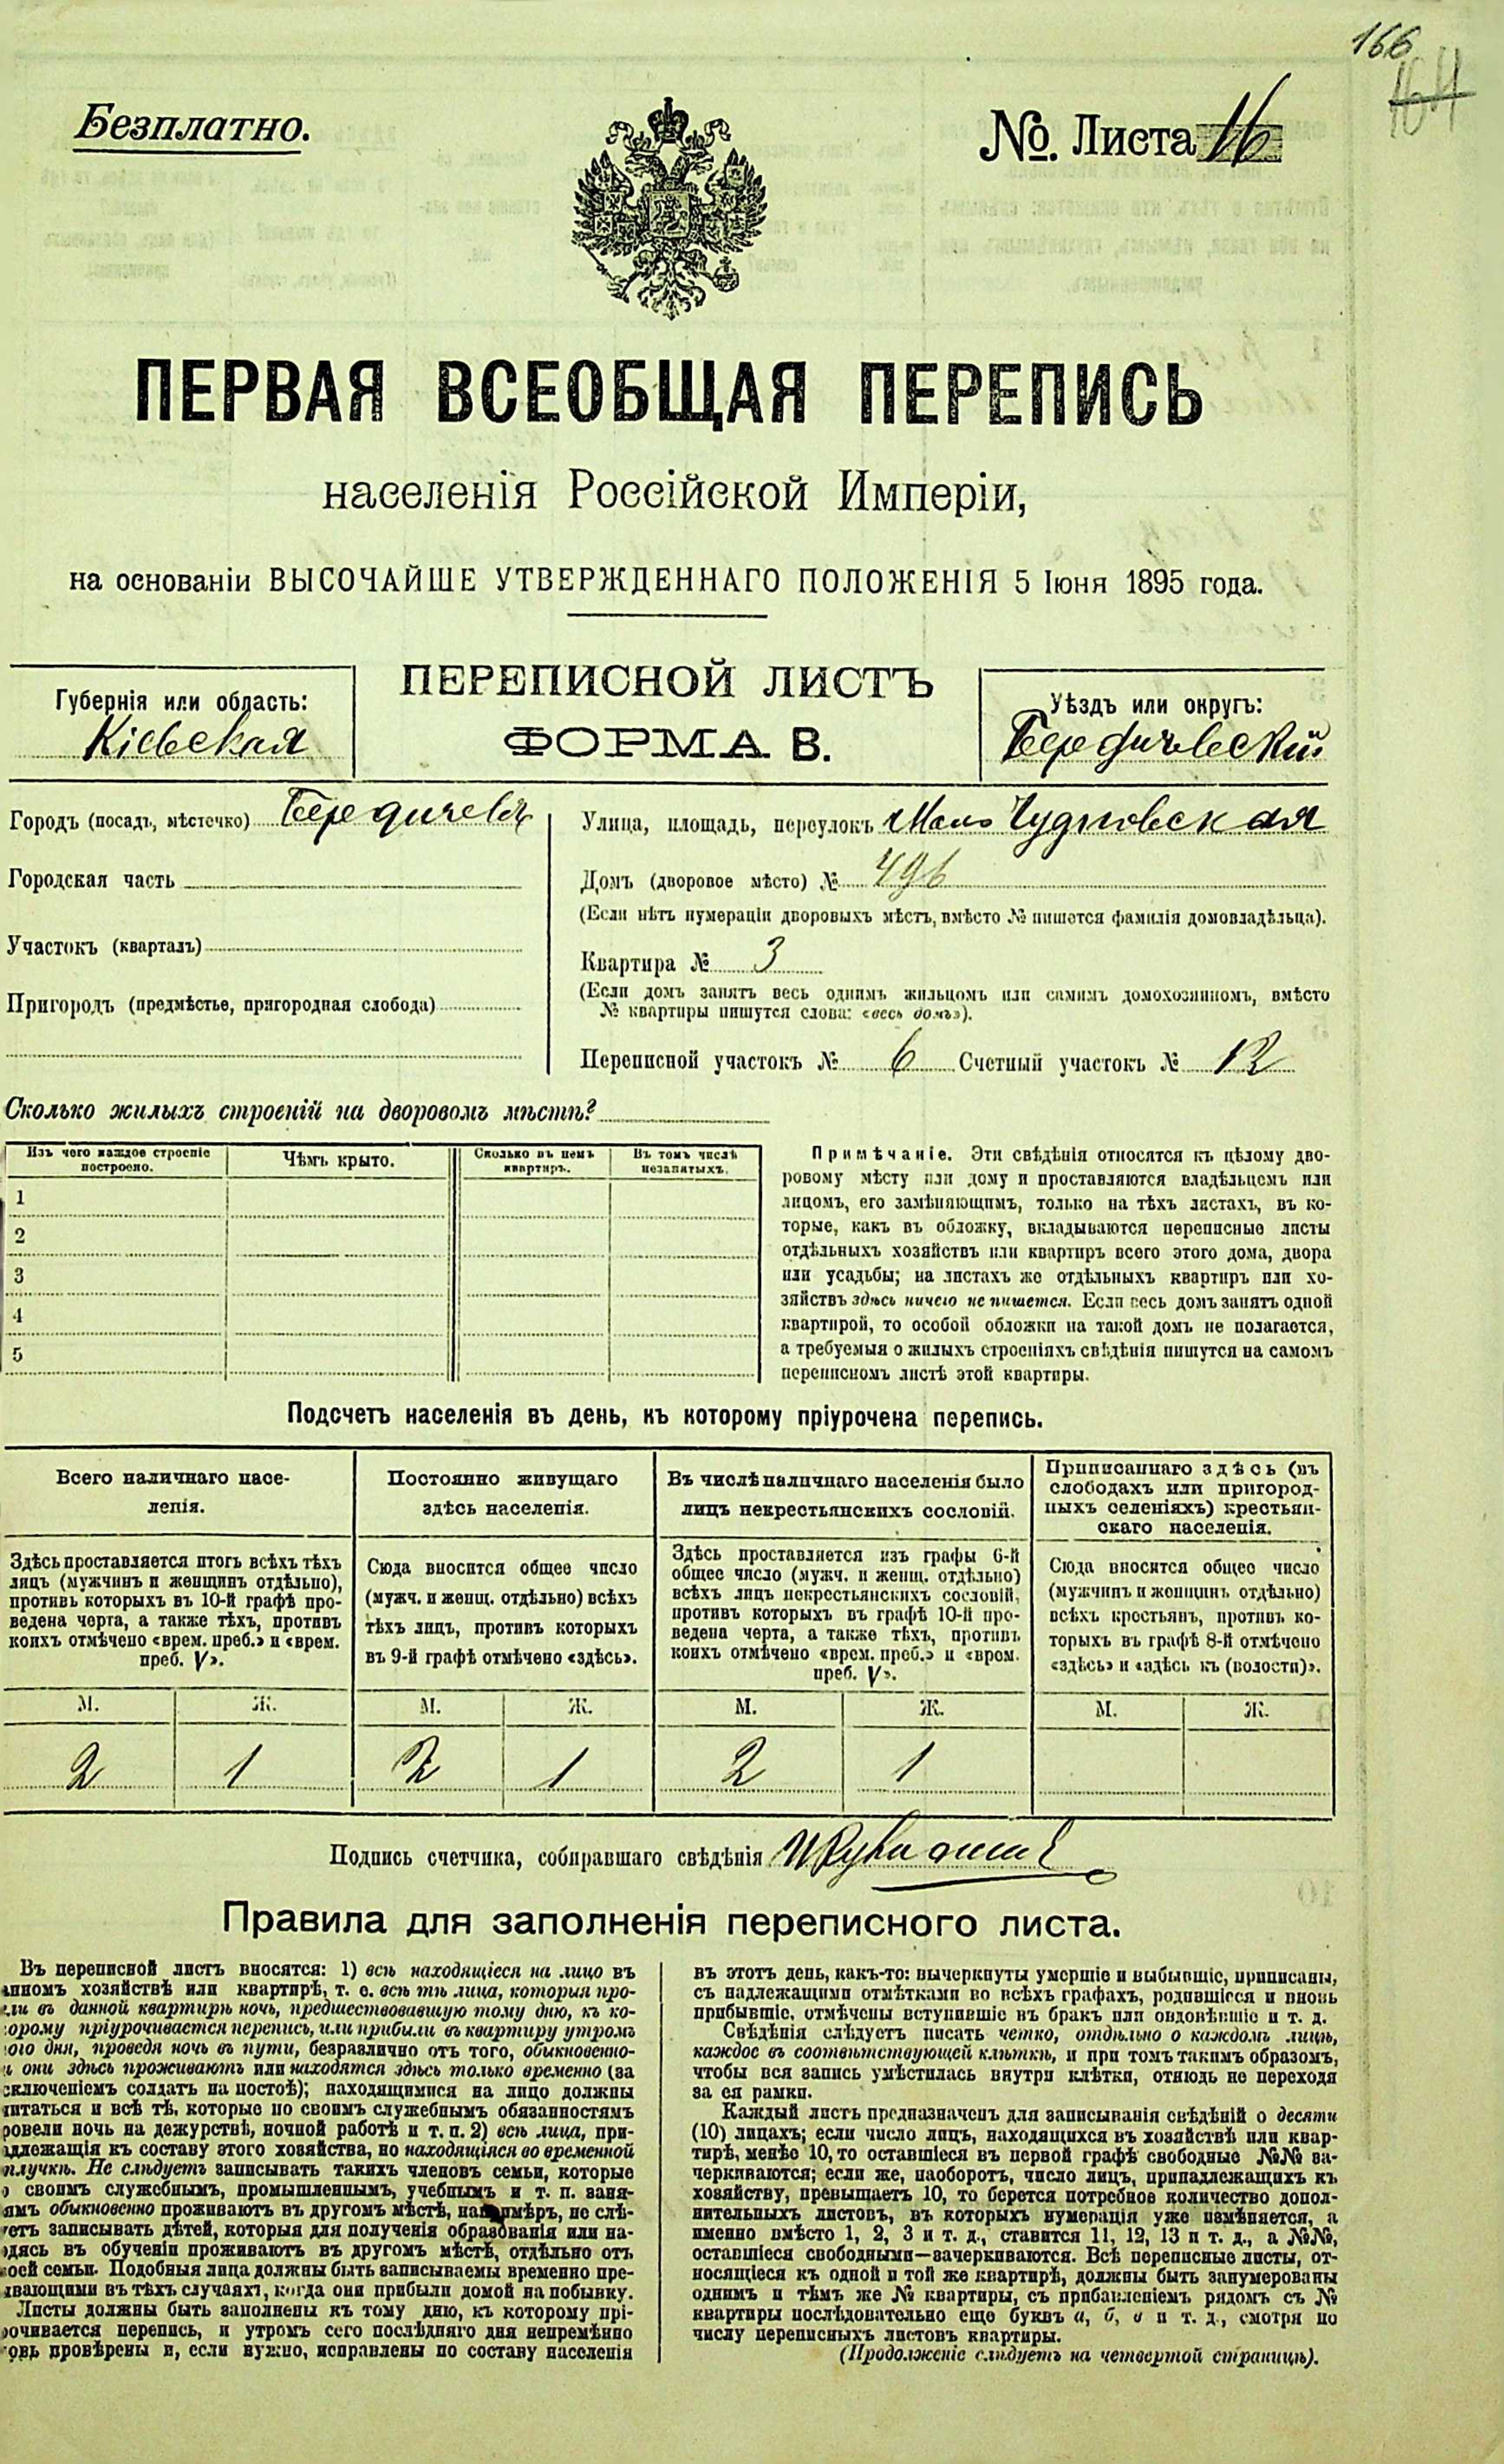 166
164
Безплатно.
№. Листа 16
ПЕРВАЯ ВСЕОБЩАЯ ПЕРЕПИСЬ
населенія Россійской Имперіи,
на основаніи ВЫСОЧАЙШЕ УТВЕРЖДЕННАГО ПОЛОЖЕНІЯ 5 Іюня 1895 года.
ПЕРЕПИСНОЙ ЛИСТЪ
ФОРМА В.
Губернія или область:
Кіевская
Уѣздъ или округъ:
Бердичевскій
Городъ (посадъ, мѣстечко) Бердичевъ
Городская часть
Участокъ (кварталъ)
Пригородъ (предмѣстье, пригородная слобода)
Улица, площадь, переулокъ Мало Чудновская
Домъ (дворовое мѣсто) № 496
(Если нѣтъ нумераціи дворовыхъ мѣстъ, вмѣсто № пишется фамилія домовладѣльца).
Квартира № 3
(Если домъ занятъ весь однимъ жильцомъ или самимъ домохозяиномъ, вмѣсто
№ квартиры пишутся слова: «весь домъ»).
Переписной участокъ № 6 Счетный участокъ № 12
Сколько жилыхъ строеній на дворовомъ мѣстѣ?
Изъ чего каждое строеніе
построено.
Чѣмъ крыто.
Сколько въ немъ
квартиръ.
Въ томъ числѣ
незанятыхъ.
1
2
3
4
5
Примѣчаніе. Эти свѣдѣнія относятся къ цѣлому дво-
ровому мѣсту или дому и проставляются владѣльцемъ или
лицомъ, его замѣняющимъ, только на тѣхъ листахъ, въ ко-
торые, какъ въ обложку, вкладываются переписные листы
отдѣльныхъ хозяйствъ или квартиръ всего этого дома, двора
или усадьбы; на листахъ же отдѣльныхъ квартиръ или хо-
зяйствъ здѣсь ничего не пишется. Если весь домъ занятъ одной
квартирой, то особой обложки на такой домъ не полагается,
а требуемыя о жилыхъ строеніяхъ свѣдѣнія пишутся на самомъ
переписномъ листѣ этой квартиры.
Подсчетъ населенія въ день, къ которому пріурочена перепись.
Всего наличнаго насе-
ленія.
Здѣсь проставляется итогъ всѣхъ тѣхъ
лицъ (мужчинъ и женщинъ отдѣльно),
противъ которыхъ въ 10-й графѣ про-
ведена черта, а также тѣхъ, противъ
коихъ отмѣчено «врем. преб.» и «врем.
преб. V».
М. Ж.
2 1
Постоянно живущаго
здѣсь населенія.
Сюда вносится общее число
(мужч. и женщ. отдѣльно) всѣхъ
тѣхъ лицъ, противъ которыхъ
въ 9-й графѣ отмѣчено «здѣсь».
М. Ж.
2 1
Въ числѣ наличнаго населенія было
лицъ некрестьянскихъ сословій.
Здѣсь проставляется изъ графы 6-й
общее число (мужч. и женщ. отдѣльно)
всѣхъ лицъ некрестьянскихъ сословій,
противъ которыхъ въ графѣ 10-й про-
ведена черта, а также тѣхъ, противъ
коихъ отмѣчено «врем. преб.» и «врем.
преб. V».
М. Ж.
2 1
Приписаннаго здѣсь (въ
слободахъ или пригород-
ныхъ селеніяхъ) крестьян-
скаго населенія.
Сюда вносится общее число
(мужчинъ и женщинъ отдѣльно)
всѣхъ крестьянъ, противъ ко-
торыхъ въ графѣ 8-й отмѣчено
«здѣсь» и «здѣсь къ (волости)».
М. Ж.
Подпись счетчика, собиравшаго свѣдѣнія
Правила для заполненія переписного листа.
Въ переписной листъ вносятся: 1) всѣ находящіеся на лицо въ
анномъ хозяйствѣ или квартирѣ, т. е. всѣ тѣ лица, которыя про-
ели въ данной квартирѣ ночь, предшествовавшую тому дню, къ ко-
торому пріурочивается перепись, или прибыли въ квартиру утромъ
того дня, проведя ночь въ пути, безразлично отъ того, обыкновенно-
и они здѣсь проживаютъ или находятся здѣсь только временно (за
сключеніемъ солдатъ на постоѣ); находящимися на лицо должны
читаться и всѣ тѣ, которые по своимъ служебнымъ обязанностямъ
ровели ночь на дежурствѣ, ночной работѣ и т. п. 2) всѣ лица, при-
адлежащія къ составу этого хозяйства, но находящіяся во временной
тлучкѣ. Не слѣдуетъ записывать такихъ членовъ семьи, которые
о своимъ служебнымъ, промышленнымъ, учебнымъ и т. п. заня-
іямъ обыкновенно проживаютъ въ другомъ мѣстѣ, напримѣръ, не слѣ-
уетъ записывать дѣтей, которыя для полученія образованія или на-
одясь въ обученіи проживаютъ въ другомъ мѣстѣ, отдѣльно отъ
воей семьи. Подобныя лица должны быть записываемы временно пре-
ывающими въ тѣхъ случаяхъ, когда они прибыли домой на побывку.
Листы должны быть заполнены къ тому дню, къ которому прі-
рочивается перепись, и утромъ сего послѣдняго дня непремѣнно
овь провѣрены и, если нужно, исправлены по составу населенія
въ этотъ день, какъ-то: вычеркнуты умершіе и выбывшіе, приписаны,
съ надлежащими отмѣтками во всѣхъ графахъ, родившіеся и вновь
прибывшіе, отмѣчены вступившіе въ бракъ или овдовѣвшіе и т. д.
Свѣдѣнія слѣдуетъ писать четко, отдѣльно о каждомъ лицѣ,
каждое въ соотвѣтствующей клѣткѣ, и при томъ такимъ образомъ,
чтобы вся запись умѣстилась внутри клѣтки, отнюдь не переходя
за ея рамки.
Каждый листъ предназначенъ для записыванія свѣдѣній о десяти
(10) лицахъ; если число лицъ, находящихся въ хозяйствѣ или квар-
тирѣ, менѣе 10, то оставшіеся въ первой графѣ свободные №№ за-
черкиваются; если же, наоборотъ, число лицъ, принадлежащихъ къ
хозяйству, превышаетъ 10, то берется потребное количество допол-
нительныхъ листовъ, въ которыхъ нумерація уже измѣняется, а
именно вмѣсто 1, 2, 3 и т. д., ставится 11, 12, 13 и т. д., а №№,
оставшіеся свободными—зачеркиваются. Всѣ переписные листы, от-
носящіеся къ одной и той же квартирѣ, должны быть занумерованы
однимъ и тѣмъ же № квартиры, съ прибавленіемъ рядомъ съ №
квартиры послѣдовательно еще буквъ а, б, в и т. д., смотря по
числу переписныхъ листовъ квартиры.
(Продолженіе слѣдуетъ на четвертой страницѣ).